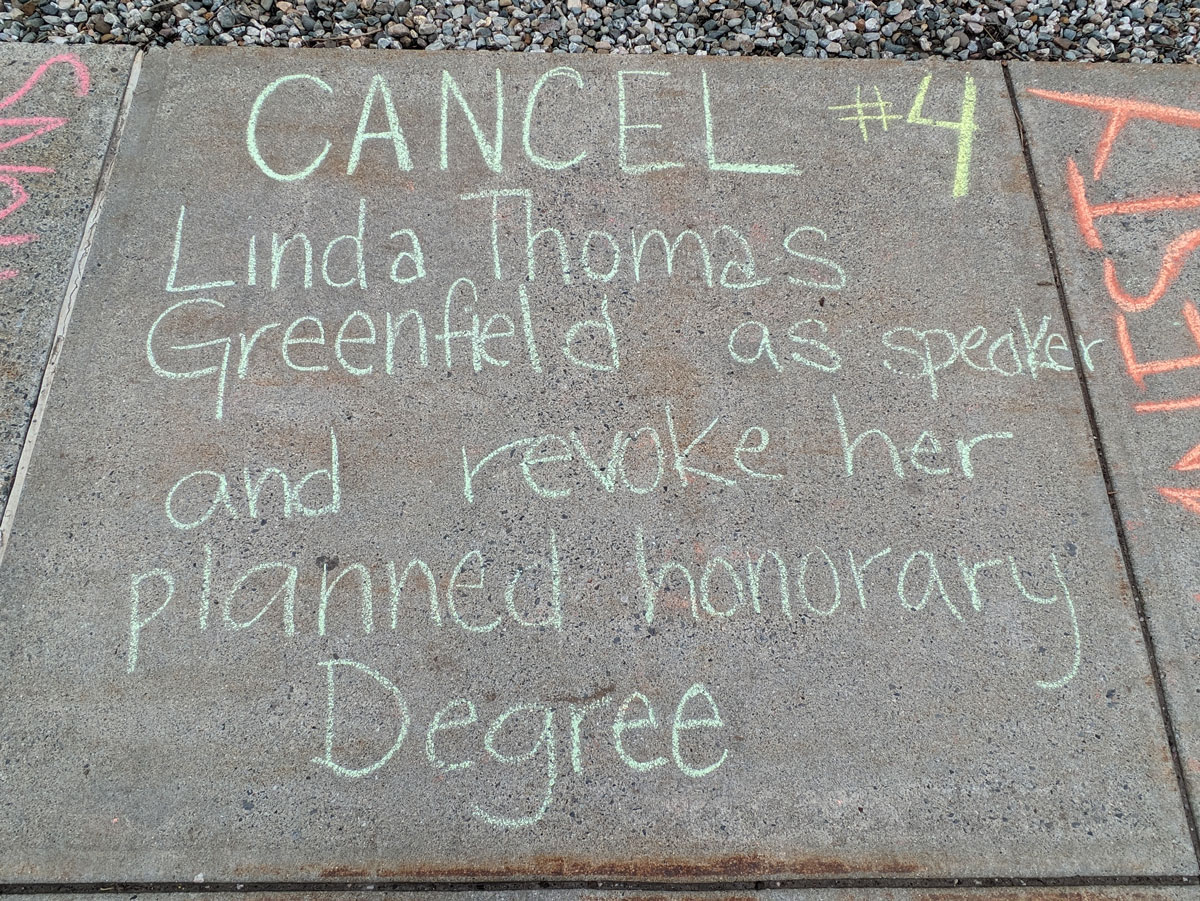 CANCEL #4
Linda Thomas
Greenfield as speaker
and revoke her
planned honorary
Degree